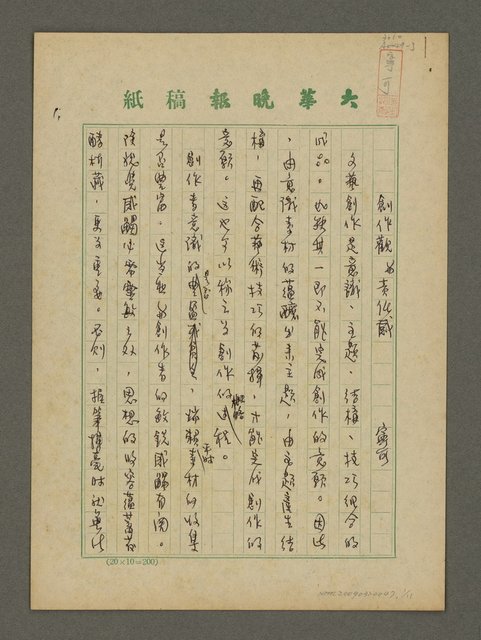 大華晚報稿紙
創作觀與責任感
寧可
文藝創作是意識、主題、結構、技巧組合的
成品。如缺其一即不能完成創作的意願。因此
，由意識素材的蘊釀出來主題，由主題產生結
構，再配合藝術技巧的發揮，才能完成創作的
意願。這也可以稱之為創作的概略過程。
創作者意識的豐富是否，端賴平時素材的收集
是否豐富，這當然與創作者的敏銳感觸有關。
除視覺感觸必需靈敏之外，思想的收容蘊蓄若
酵場藏，更為重要。否則，提筆揮毫時的無法
(20×10=200)